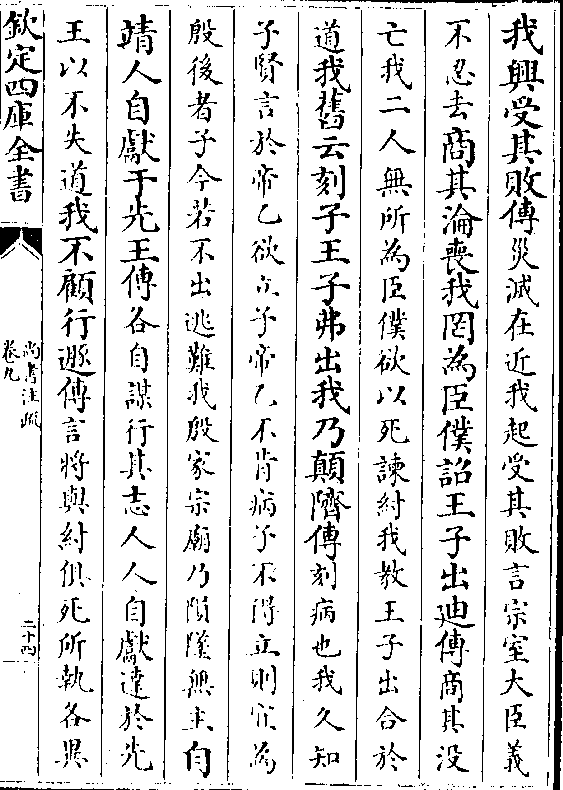 我興受其敗傳災滅在近我起受其敗言宗室大臣義
不忍去商其淪喪我罔為臣僕詔王子出迪傳商其没
亡我二人無所為臣僕欲以死諫紂我教王子出合於
道我舊云刻子王子弗出我乃顛隮傳刻病也我久知
子賢言於帝乙欲立子帝乙不肯病子不得立則宜為
殷後者子今若不出逃難我殷家宗廟乃隕墜無主自
靖人自獻于先王傳各自謀行其志人人自獻達於先
王以不失道我不顧行遯傳言將與紂俱死所執各異
欽定四庫全書
尚書注疏
卷九
二十四